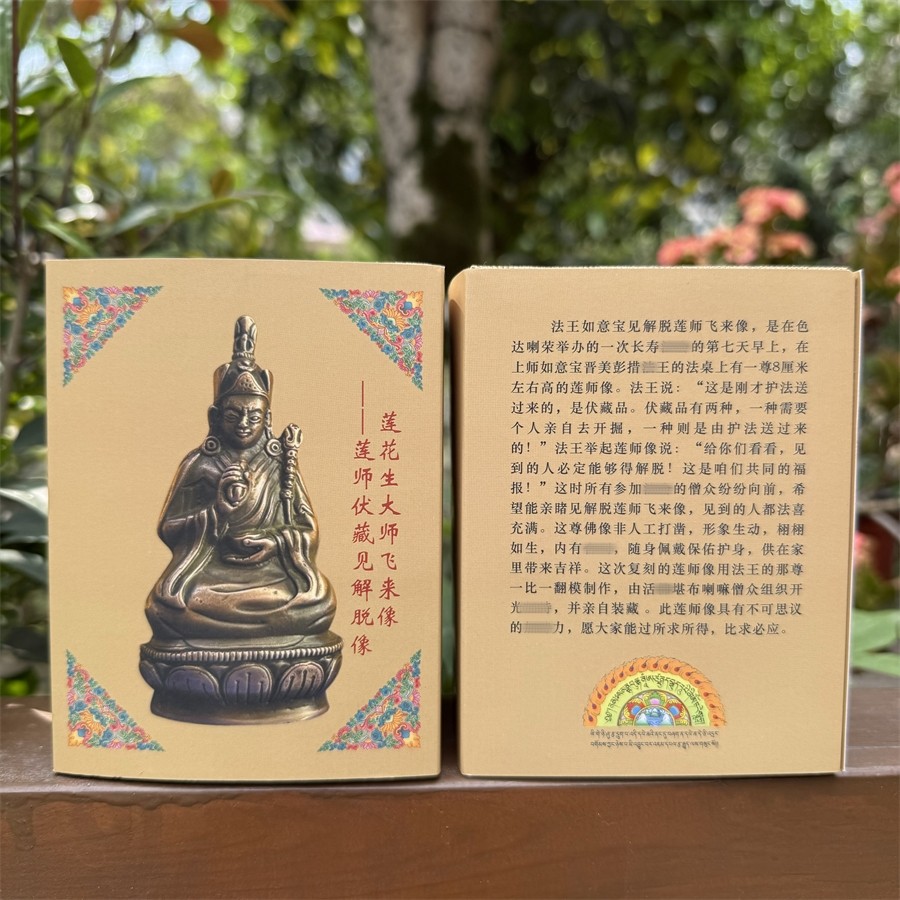 莲花生大师飞来像
——莲师伏藏见解脱像
法王如意宝见解脱莲师飞来像，是在色
达喇荣举办的一次长寿的第七天早上，在
上师如意宝晋美彭措王的法桌上有一尊8厘米
左右高的莲师像。法王说：“这是刚才护法送
过来的，是伏藏品。伏藏品有两种，一种需要
个人亲自去开掘，一种则是由护法送过来
的！”法王举起莲师像说：“给你们看看，见
到的人必定能够得解脱！这是咱们共同的福
报！”这时所有参加的僧众纷纷向前，希
望能亲睹见解脱莲师飞来像，见到的人都法喜
充满。这尊佛像非人工打凿，形象生动，栩栩
如生，内有，随身佩戴保佑护身，供在家
里带来吉祥。这次复刻的莲师像用法王的那尊
一比一翻模制作，由活堪布喇嘛僧众组织开
光，并亲自装藏。此莲师像具有不可思议
的力，愿大家能过所求所得，比求必应。